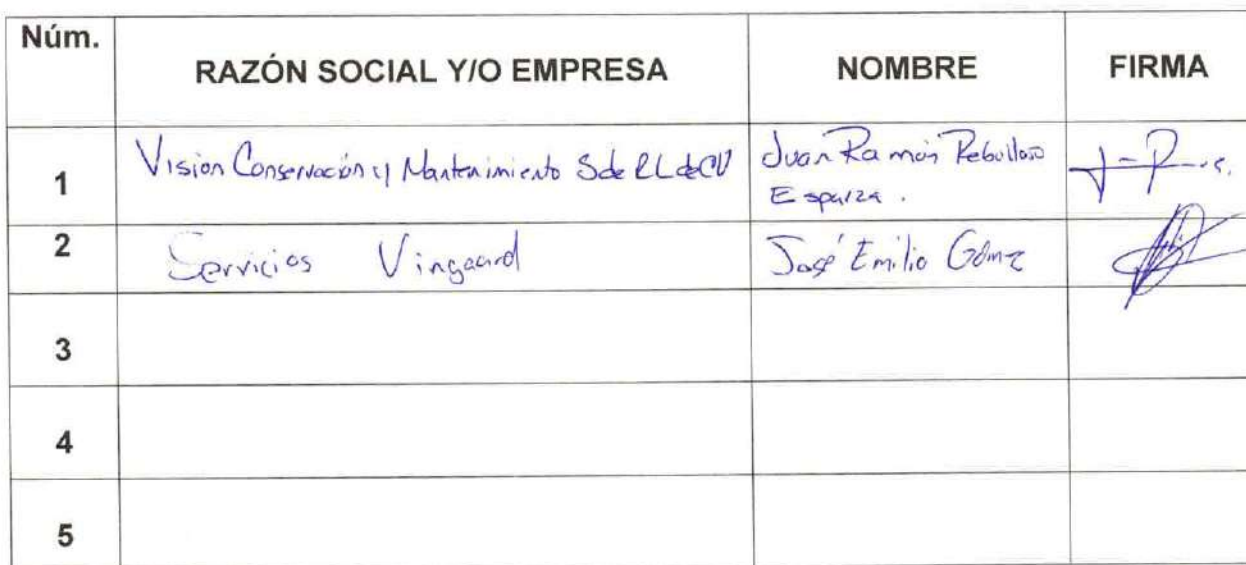 Núm. RAZÓN SOCIAL Y/O EMPRESA NOMBRE FIRMA
1 Vision Conservación y Mantenimiento S de RL de CV Juan Ramón Rebolloso
Esparza.
2 Servicios Vingaard José Emilio Gómez
3
4
5